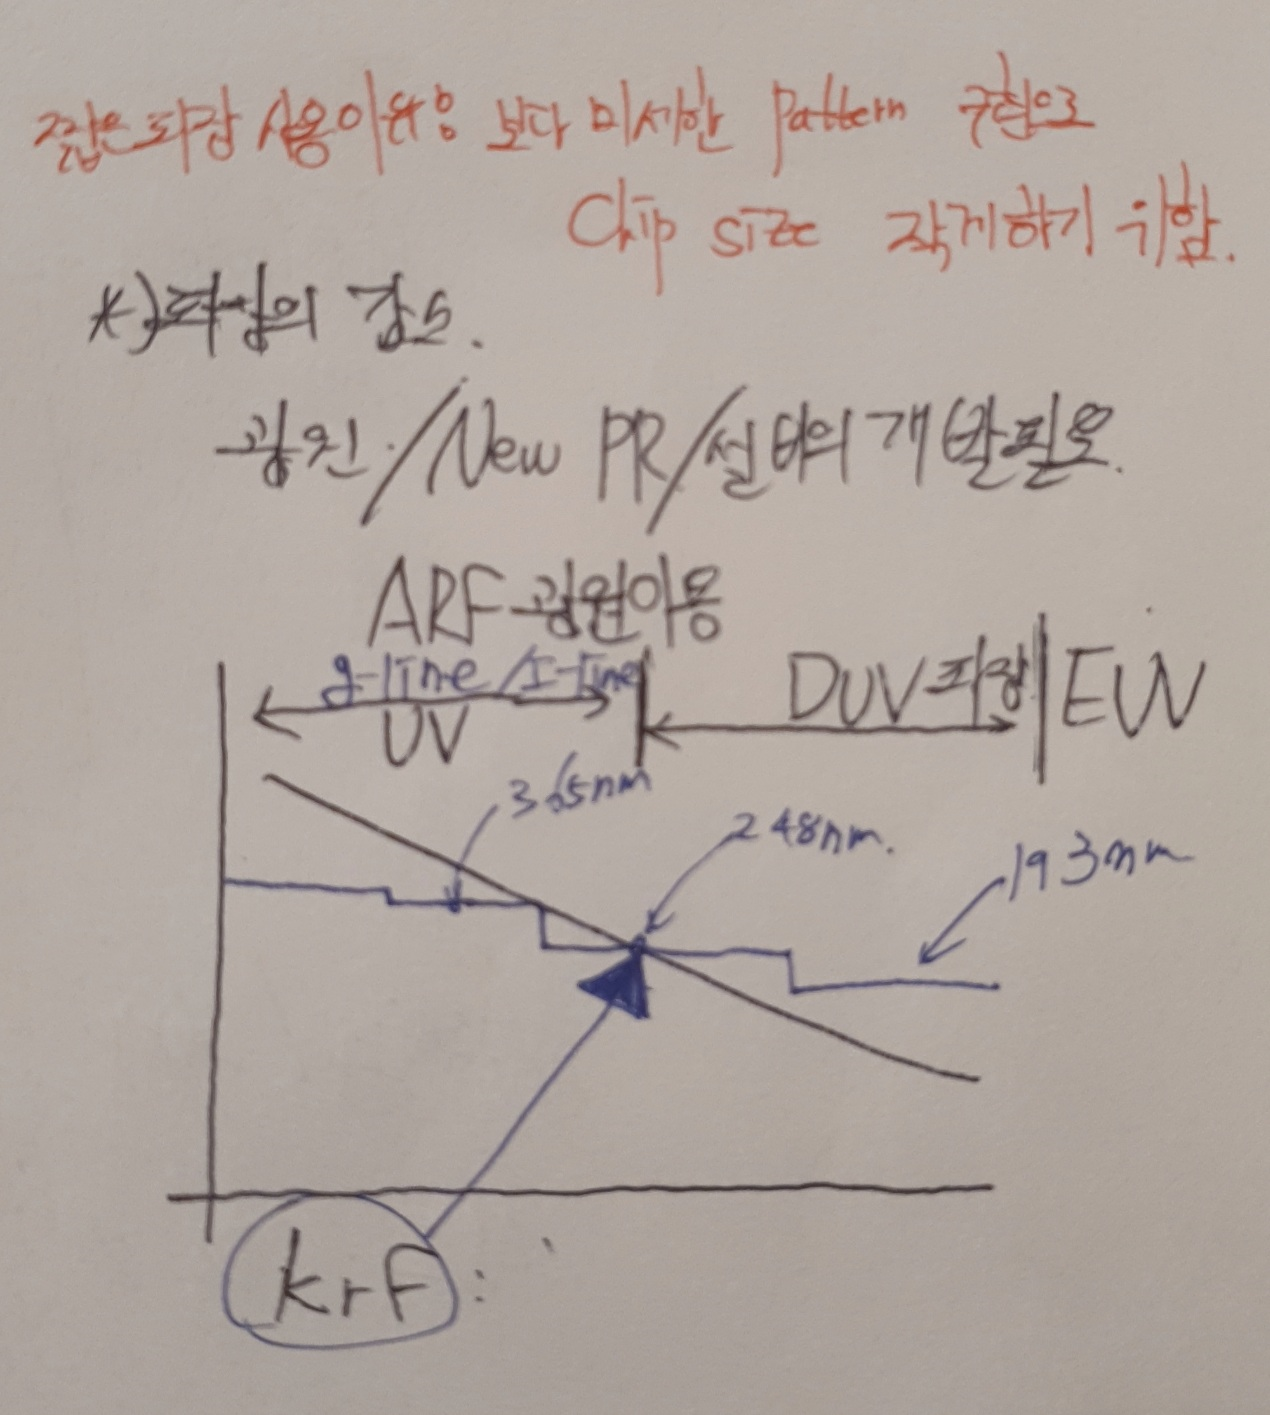 짧은 파장 사용이유: 보다 미세한 pattern 구현으로
Chip size 작게하기 위함.
*) 파장의 감소.
광원/New PR/설비의 개발필요.
ARF 광원이용
g-line/I-line
UV
DUV 파장
EUV
365nm
248nm.
193nm
krF: